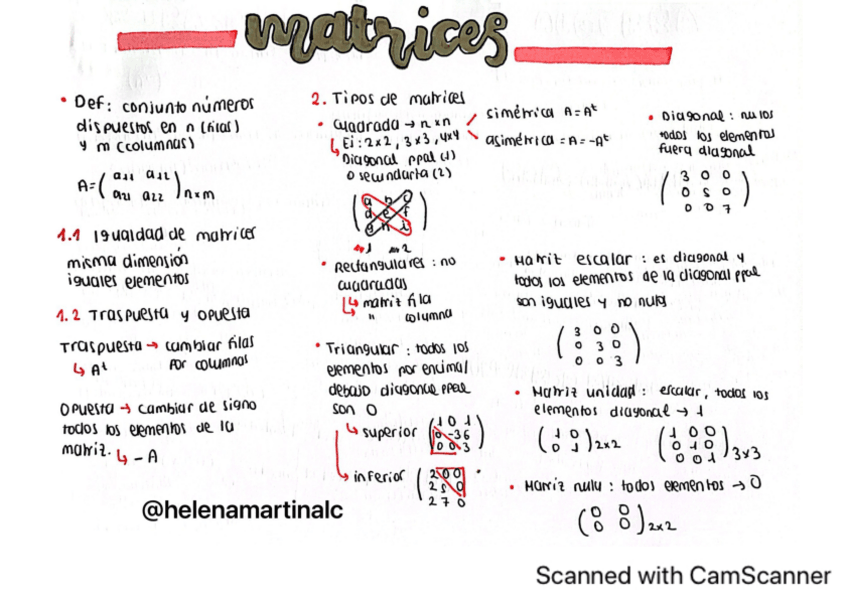 matrices
• Def: conjunto números
dispuestos en n (filas)
y m (columnas)
A = ( a11 a12
a21 a22 ) n×m
1.1 Igualdad de matrices
misma dimensión
iguales elementos
1.2 Traspuesta y opuesta
Traspuesta → cambiar filas
por columnas
↳ Aᵗ
Opuesta → cambiar de signo
todos los elementos de la
matriz. ↳ -A
2. Tipos de matrices
• Cuadrada → n×n
simétrica A=Aᵗ
asimétrica = A=-Aᵗ
↳ Ej: 2×2, 3×3, 4×4
↳ Diagonal ppal (1)
o secundaria (2)
( a b c
d e f
g h i )
1 2
• Rectangulares: no
cuadradas
↳ matriz fila
↳ " columna
• Triangular: todos los
elementos por encima/
debajo diagonal ppal
son 0
↳ superior ( 1 0 1
0 -3 6
0 0 3 )
↳ inferior ( 2 0 0
2 5 0
2 7 0
• Diagonal: nulos
todos los elementos
fuera diagonal
( 3 0 0
0 5 0
0 0 7 )
• Matriz escalar: es diagonal y
todos los elementos de la diagonal ppal
son iguales y no nulos
( 3 0 0
0 3 0
0 0 3 )
• Matriz unidad: escalar, todos los
elementos diagonal → 1
( 1 0
0 1 ) 2×2
( 1 0 0
0 1 0
0 0 1 ) 3×3
• Matriz nula: todos elementos → 0
( 0 0
0 0 ) 2×2
@helenamartinalc
Scanned with CamScanner